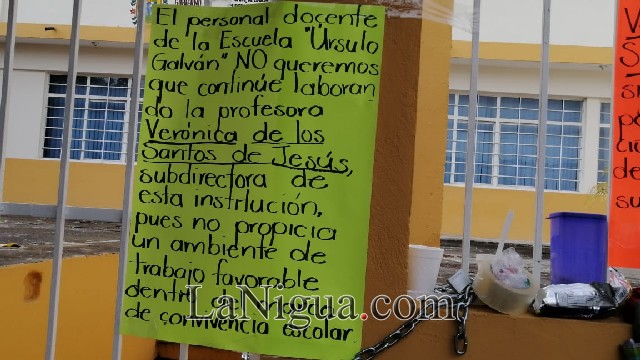 El personal docente
de la Escuela "Úrsulo
Galván" NO queremos
que continúe laboran
do la profesora
Verónica de los
Santos de Jesús,
subdirectora de
esta institución,
pues no propicia
un ambiente de
trabajo favorable
dentro
de convivencia escolar
LaNigua.com